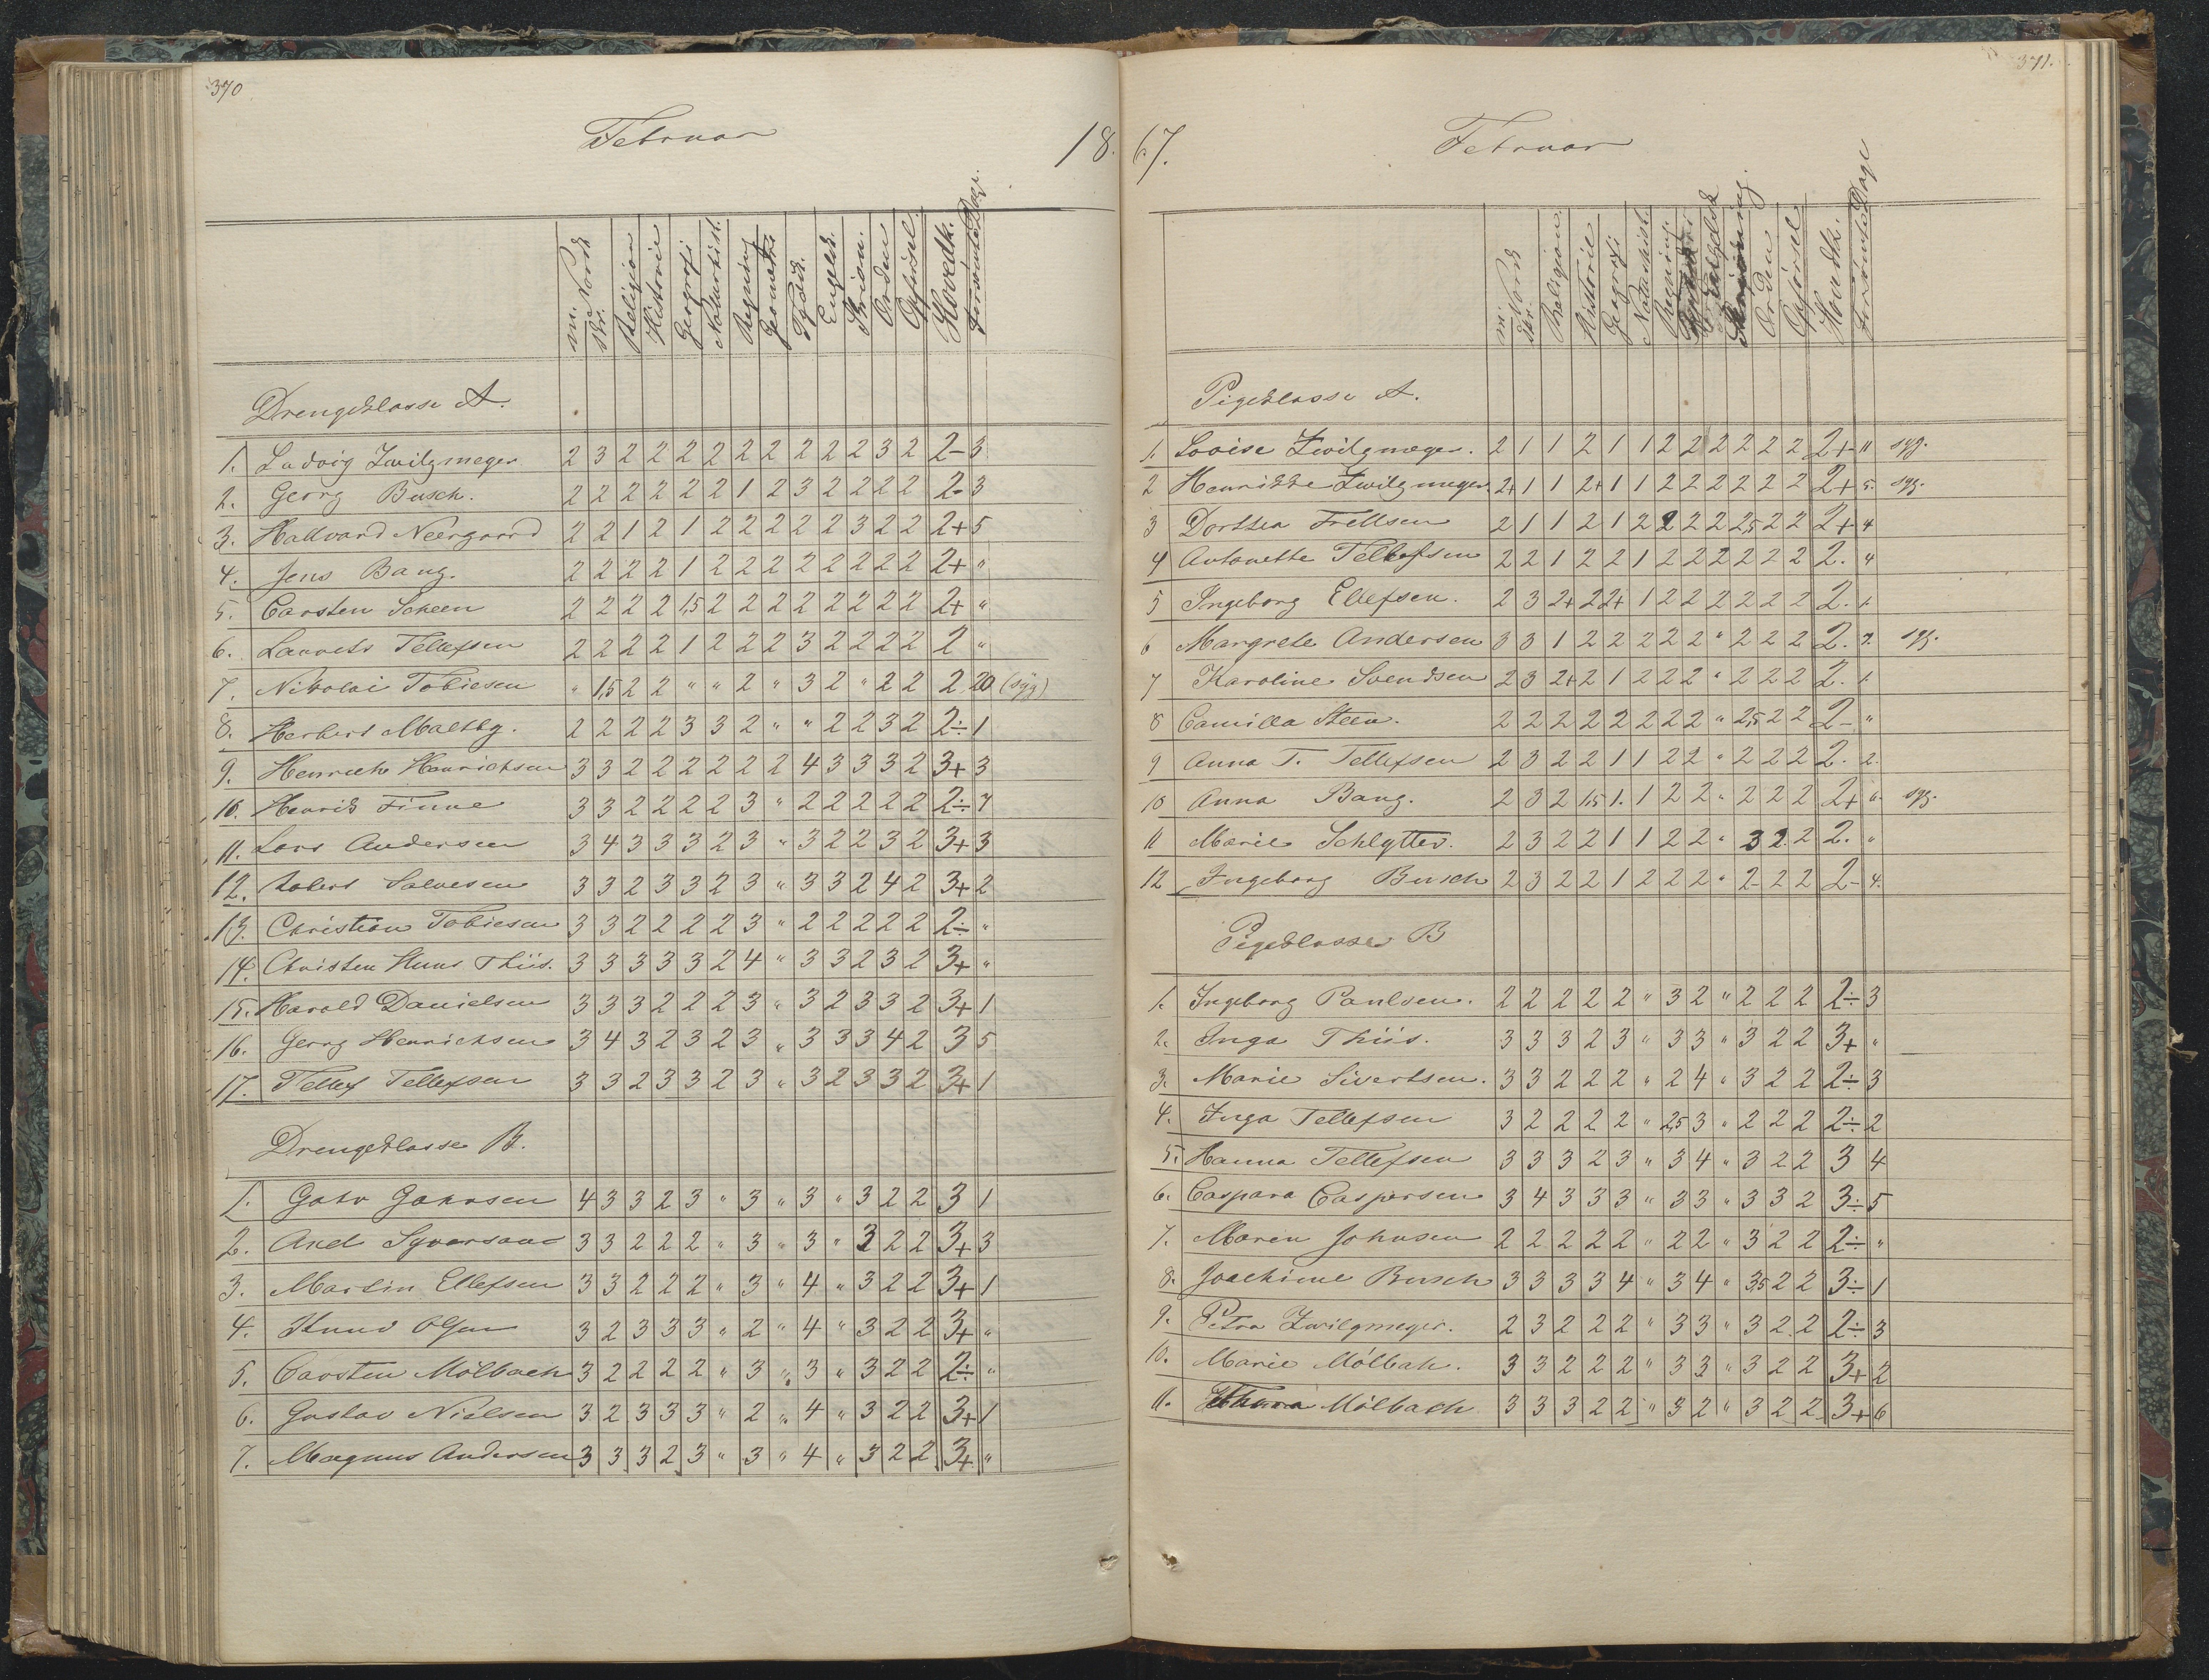 370
Februar
18
m. Norsk skr. Religion Historie Geografi Naturhist. Regning Geometri Tydsk. Engelsk. Skrivn. Orden Opførsel. Hovedk. Forsømte Dage.
Drengeklasse A.
1. Ludvig Zwilgmeyer 2 3 2 2 2 2 2 2 2 2 2 3 2 2- 3
2. Georg Busch. 2 2 2 2 2 2 1 2 3 2 2 2 2 2- 3
3. Hallvard Neergaard 2 2 1 2 1 2 2 2 2 2 3 2 2 2+ 5
4. Jens Bang. 2 2 2 2 1 2 2 2 2 2 2 2 2 2+ "
5. Carsten Scheen 2 2 2 2 1,5 2 2 2 2 2 2 2 2 2+ "
6. Laurets Tellefsen 2 2 2 2 1 2 2 2 3 2 2 2 2 2 "
7. Nikolai Tobiesen " 1,5 2 2 " " 2 " 3 2 " 2 2 2 20 (syg)
8. Herbert Maltby. 2 2 2 2 3 3 2 " " 2 2 3 2 2÷ 1
9. Henrich Henrichsen 3 3 2 2 2 2 2 2 4 3 3 3 2 3+ 3
10. Henrik Finne 3 3 2 2 2 2 3 " 2 2 2 2 2 2÷ 7
11. Lars Andersen 3 4 3 3 3 2 3 " 3 2 2 3 2 3+ 3
12. Robert Salvesen 3 3 2 3 3 2 3 " 3 3 2 4 2 3+ 2
13. Christian Tobiesen 3 3 2 2 2 2 3 " 2 2 2 2 2 2÷ "
14. Christen Thiis. 3 3 3 3 3 2 4 " 3 3 2 3 2 3+ "
15. Harald Danielsen 3 3 3 2 2 2 3 " 3 2 3 3 2 3+ 1
16. Georg Henrichsen 3 4 3 2 3 2 3 " 3 3 3 4 2 3 5
17. Tellef Tellefsen 3 3 2 3 3 2 3 " 3 2 3 3 2 3+ 1
Drengeklasse B.
1. 4 3 3 2 3 " 3 " 3 " 3 2 2 3 1
2. 3 3 2 2 2 " 3 " 3 " 3 2 2 3+ 3
3. Martin Ellefsen 3 3 2 2 2 " 3 " 4 " 3 2 2 3+ 1
4. Knud Olsen 3 2 3 3 3 " 2 " 4 " 3 2 2 3+ "
5. Carsten Mölbach 3 2 2 2 2 " 3 " 3 " 3 2 2 2÷ "
6. Gustav Nielsen 3 2 3 3 3 " 2 " 4 " 3 2 2 3+ 1
7. Magnus Andersen 3 3 3 2 3 " 3 " 4 " 3 2 2 3+ "
371.
67.
Februar
m. Norsk skr. Religion. Historie Geografi Naturhist. Regning. Engelsk Orden Opførsel Hovedk. Forsømte Dage
Pigeklasse A.
1. Lovise Zwilgmeyer. 2 1 1 2 1 1 2 2 2 2 2 2 2+ 11 syg.
2 Henrikke Zwilgmeyer. 2+ 1 1 2+ 1 1 2 2 2 2 2 2 2+ 5. syg.
3 Dorthea Trellsen 2 1 1 2 1 2 2 2 2 2,5 2 2 2+ 4
4 Antonette Tellefsen 2 2 1 2 2 1 2 2 2 2 2 2 2. 4
5 Ingeborg Ellefsen. 2 3 2+ 2 2+ 1 2 2 2 2 2 2 2. 1.
6 Margrete Andersen 3 3 1 2 2 2 2 2 " 2 2 2 2. 7. syg.
7 Karoline Svendsen 2 3 2+ 2 1 2 2 2 " 2 2 2 2. 1.
8 Camilla Steen. 2 2 2 2 2 2 2 2 " 2,5 2 2 2- "
9 Anna T. Tellefsen 2 3 2 2 1 1 2 2 " 2 2 2 2. 2.
10 Anna Bang. 2 3 2 1,5 1. 1 2 2 " 2 2 2 2+ 6. syg.
11 Marie Schlytter. 2 3 2 2 1 1 2 2 " 3 2. 2 2. "
12 Ingeborg Busch 2 3 2 2 1 2 2 2 " 2- 2 2 2- 4.
Pigeklasse B
1. Ingeborg Paulsen. 2 2 2 2 2 " 3 2 " 2 2 2 2÷ 3
2. Inga Thiis. 3 3 3 2 3 " 3 3 " 3 2 2 3+ "
3. Marie Sivertsen. 3 3 2 2 2 " 2 4 " 3 2 2 2÷ 3
4. Inga Tellefsen 3 2 2 2 2 " 2,5 3 " 2 2 2 2÷ 2
5. Hanna Tellefsen 3 3 3 2 3 " 3 4 " 3 2 2 3 4
6. Caspara Caspersen 3 4 3 3 3 " 3 3 " 3 3 2 3÷ 5
7. Maren Johnsen 2 2 2 2 2 " 2 2 " 3 2 2 2÷ "
8. Joachime Busch 3 3 3 3 4 " 3 4 " 3,5 2 2 3÷ 1
9. Petra Zwilgmeyer. 2 3 2 2 2 " 3 3 " 3 2 2 2÷ 3
10. Marie Mölbach. 3 3 2 2 2 " 3 3 " 3 2 2 3+ 2
11. Mölbach 3 3 3 2 2 " 3 2 " 3 2 2 3+ 6